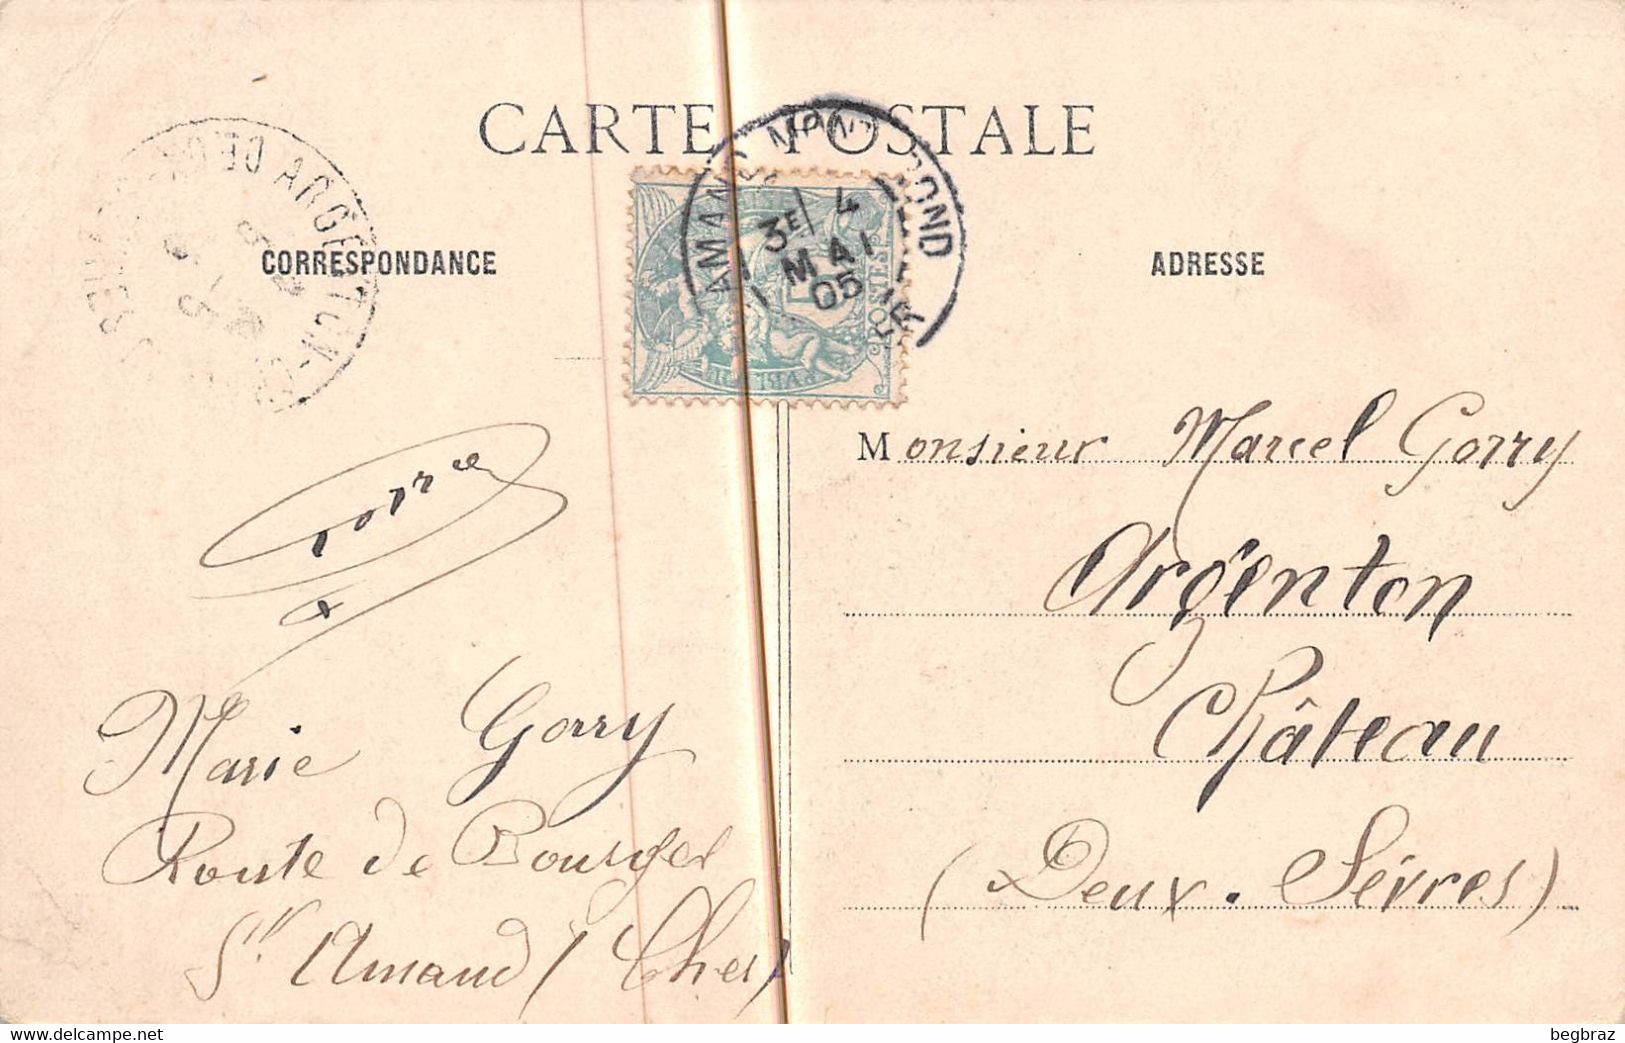 CARTE POSTALE
CORRESPONDANCE
ADRESSE
AMAND MONTROND
3E 4
MAI
05
POSTES
ARGENTON-
Monsieur Marcel Gorry
Argenton
Château
(Deux-Sèvres)
Marie Gorry
Route de Bourges
St Amand (Cher)
delcampe.net
begbraz